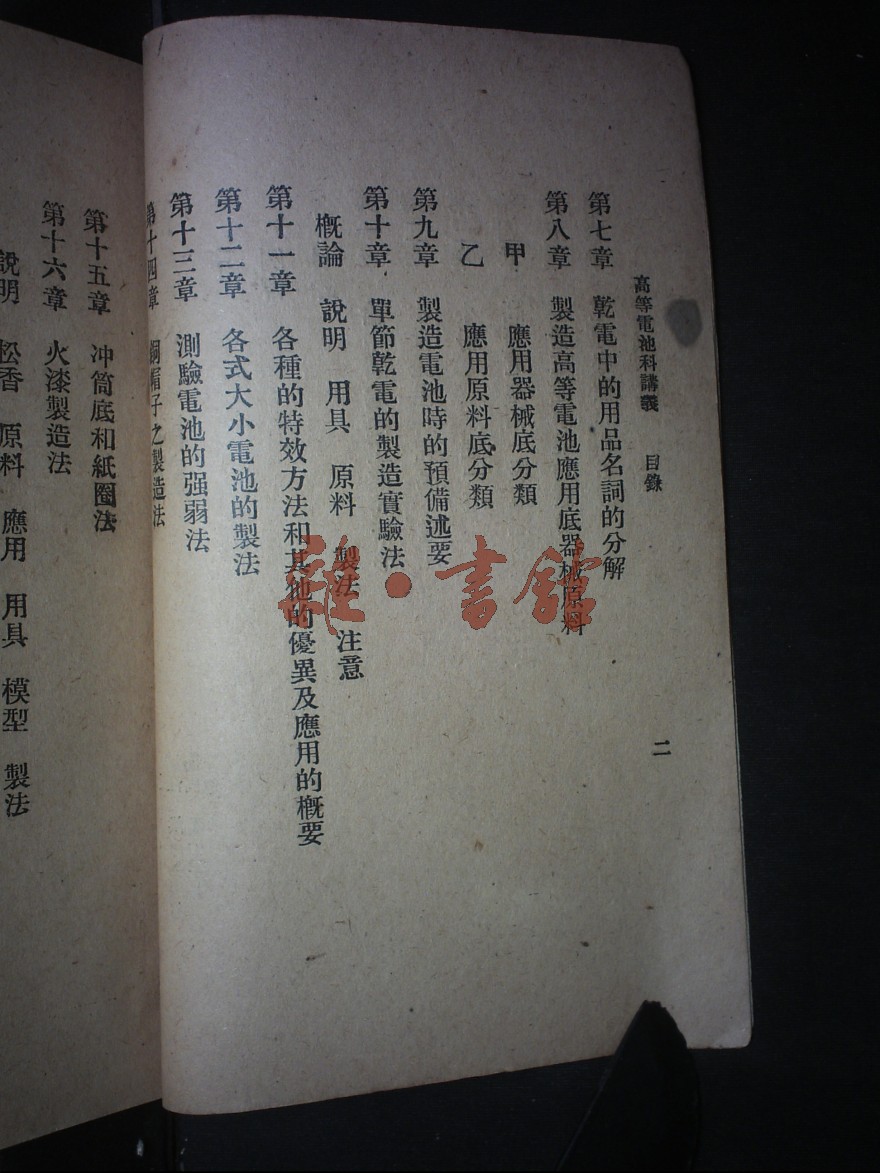 高等電池科講義　目錄　二
第七章　乾電中的用品名詞的分解
第八章　製造高等電池應用底器械原料
甲　應用器械底分類
乙　應用原料底分類
第九章　製造電池時的預備述要
第十章　單節乾電的製造實驗法
概論　說明　用具　原料　製法　注意
第十一章　各種的特效方法和其他的優異及應用的概要
第十二章　各式大小電池的製法
第十三章　測驗電池的强弱法
第十四章　銅帽子之製造法
第十五章　冲筒底和紙圈法
第十六章　火漆製造法
說明　松香　原料　應用　用具　模型　製法
雜·書館